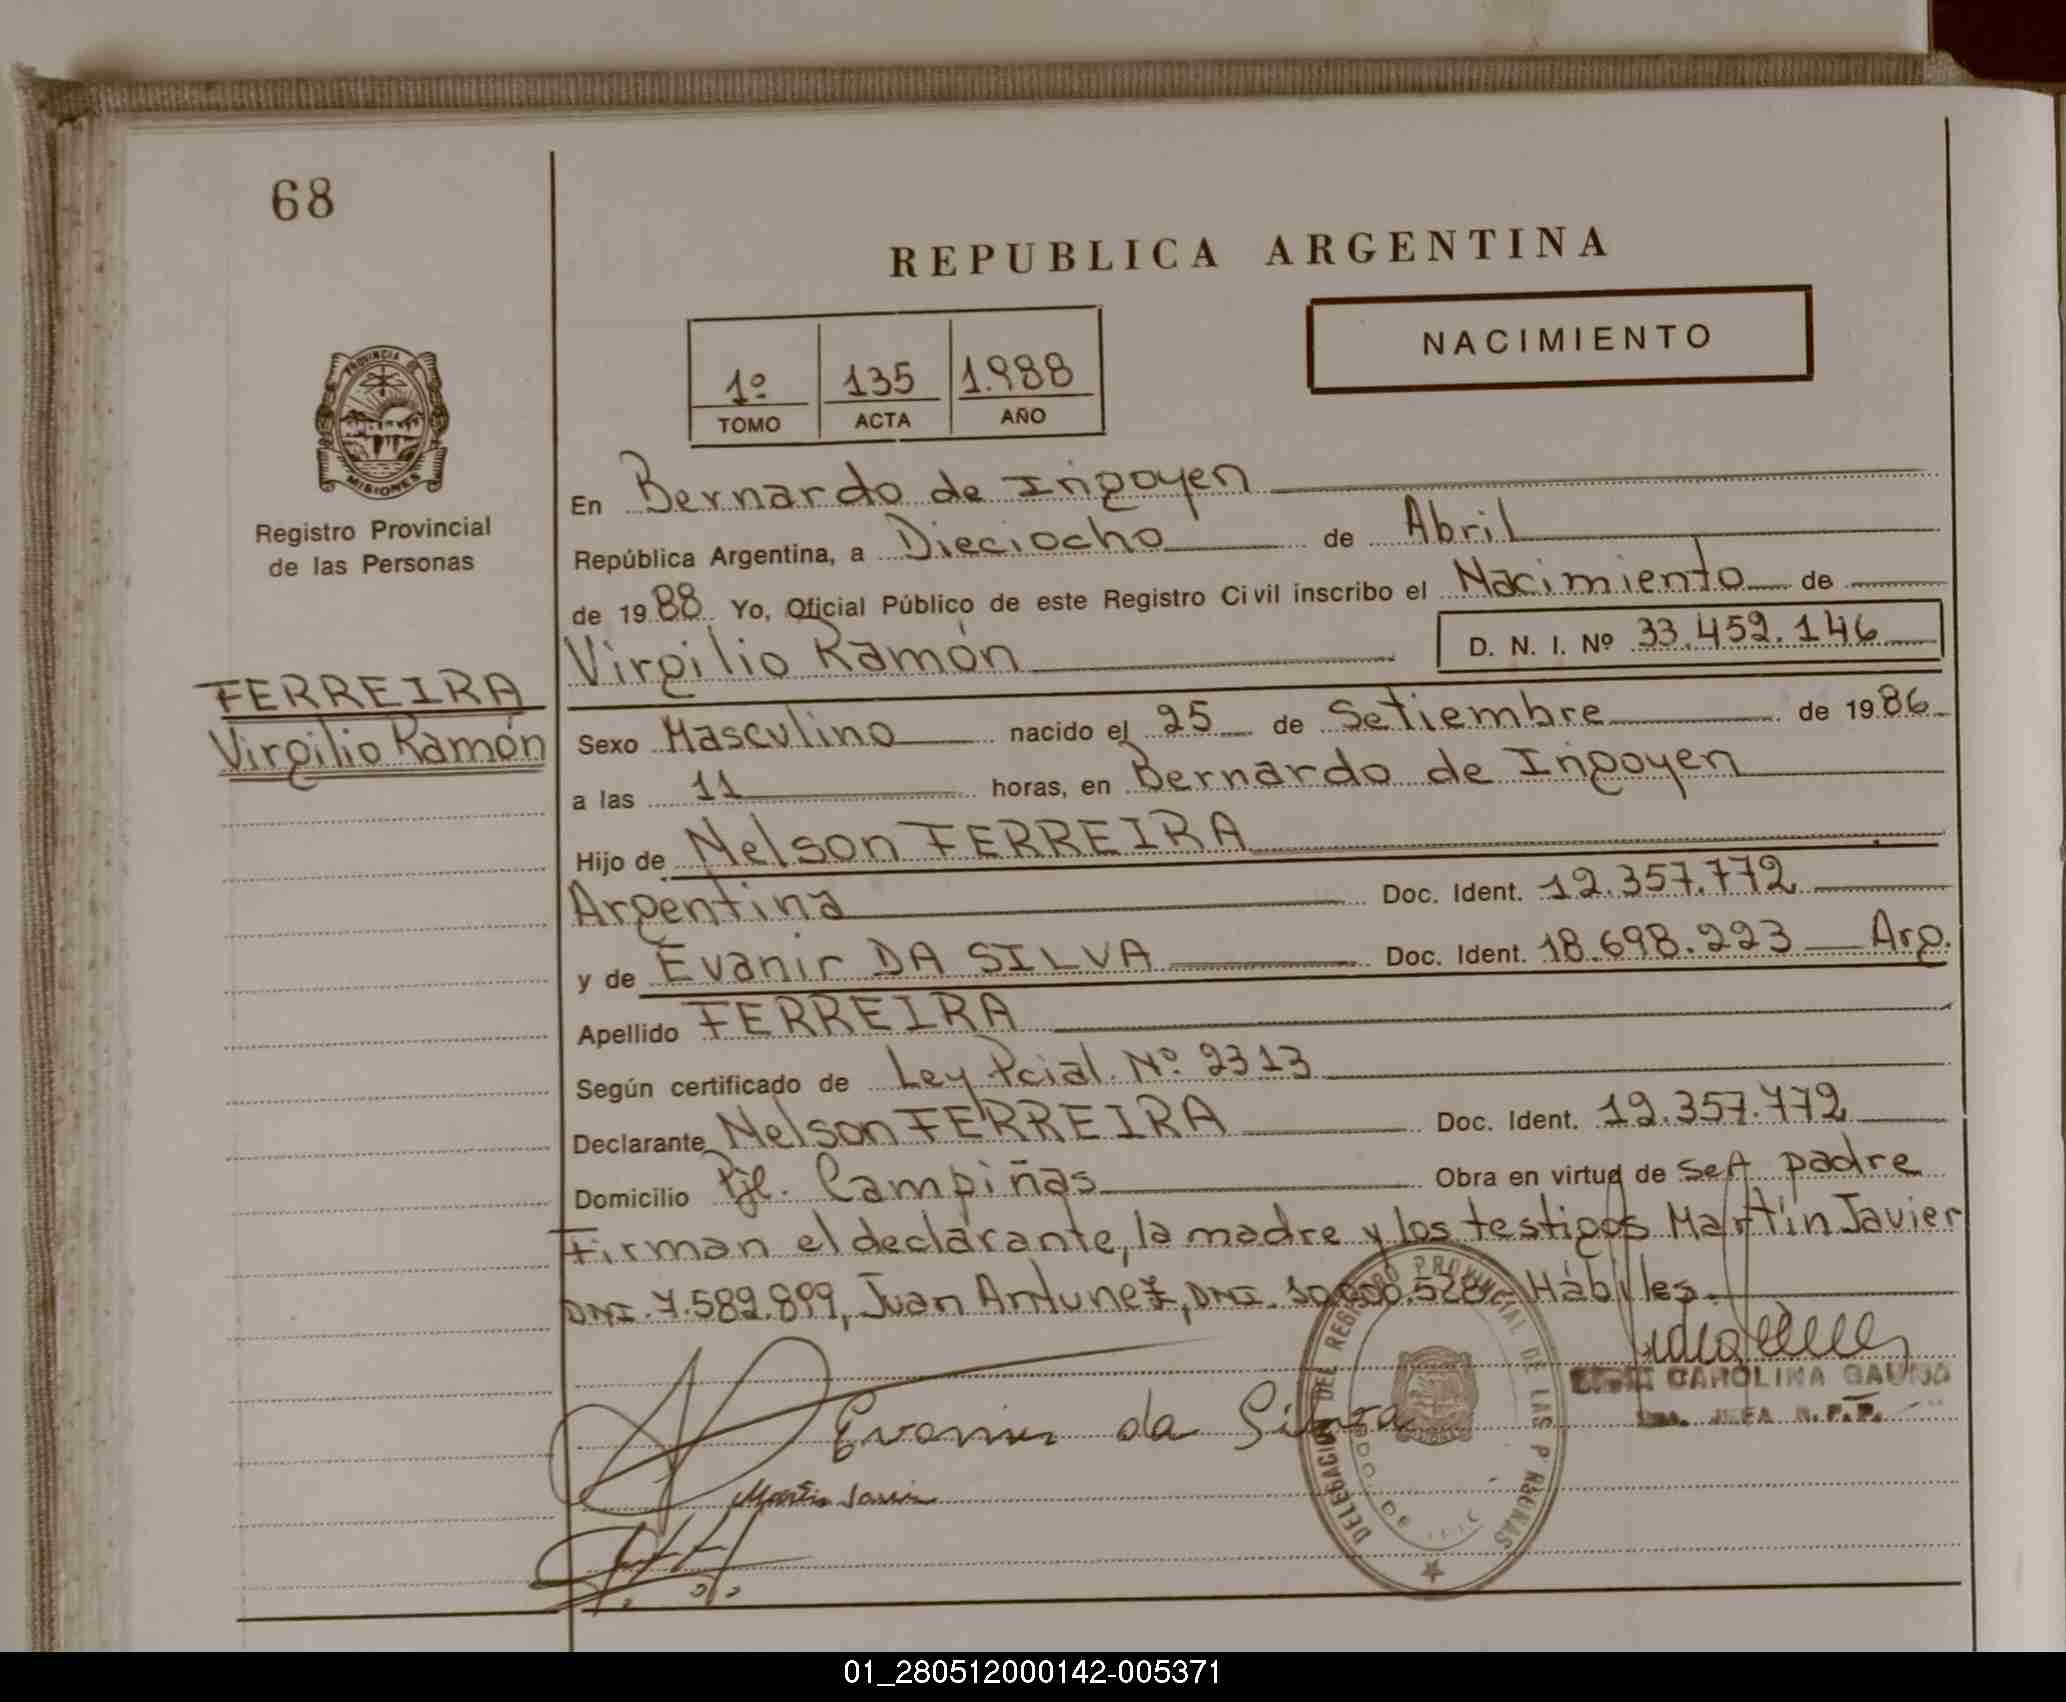 68
REPUBLICA ARGENTINA
NACIMIENTO
1º 135 1.988
TOMO ACTA AÑO
PROVINCIA DE MISIONES
Registro Provincial
de las Personas
FERREIRA
Virgilio Ramón
En Bernardo de Irigoyen
República Argentina, a Dieciocho de Abril
de 1988 Yo, Oficial Público de este Registro Civil inscribo el Nacimiento de
Virgilio Ramón D. N. I. Nº 33.452.146
Sexo Masculino nacido el 25 de Setiembre de 1986
a las 11 horas, en Bernardo de Irigoyen
Hijo de Nelson FERREIRA
Argentina Doc. Ident. 12.357.772
y de Evanir DA SILVA Doc. Ident. 18.698.223 Arg.
Apellido FERREIRA
Según certificado de Ley Pcial. Nº 2313
Declarante Nelson FERREIRA Doc. Ident. 12.357.772
Domicilio Pje. Campiñas Obra en virtud de ser padre
Firman el declarante, la madre y los testigos Martín Javier
DNI. 7.582.899, Juan Antunez, DNI. Hábiles.
CAROLINA GAUNA
JEFA R.P.P.
Evanir da Silva
Martin Javier
DELEGACION DEL REGISTRO PROVINCIAL DE LAS PERSONAS
01_280512000142-005371